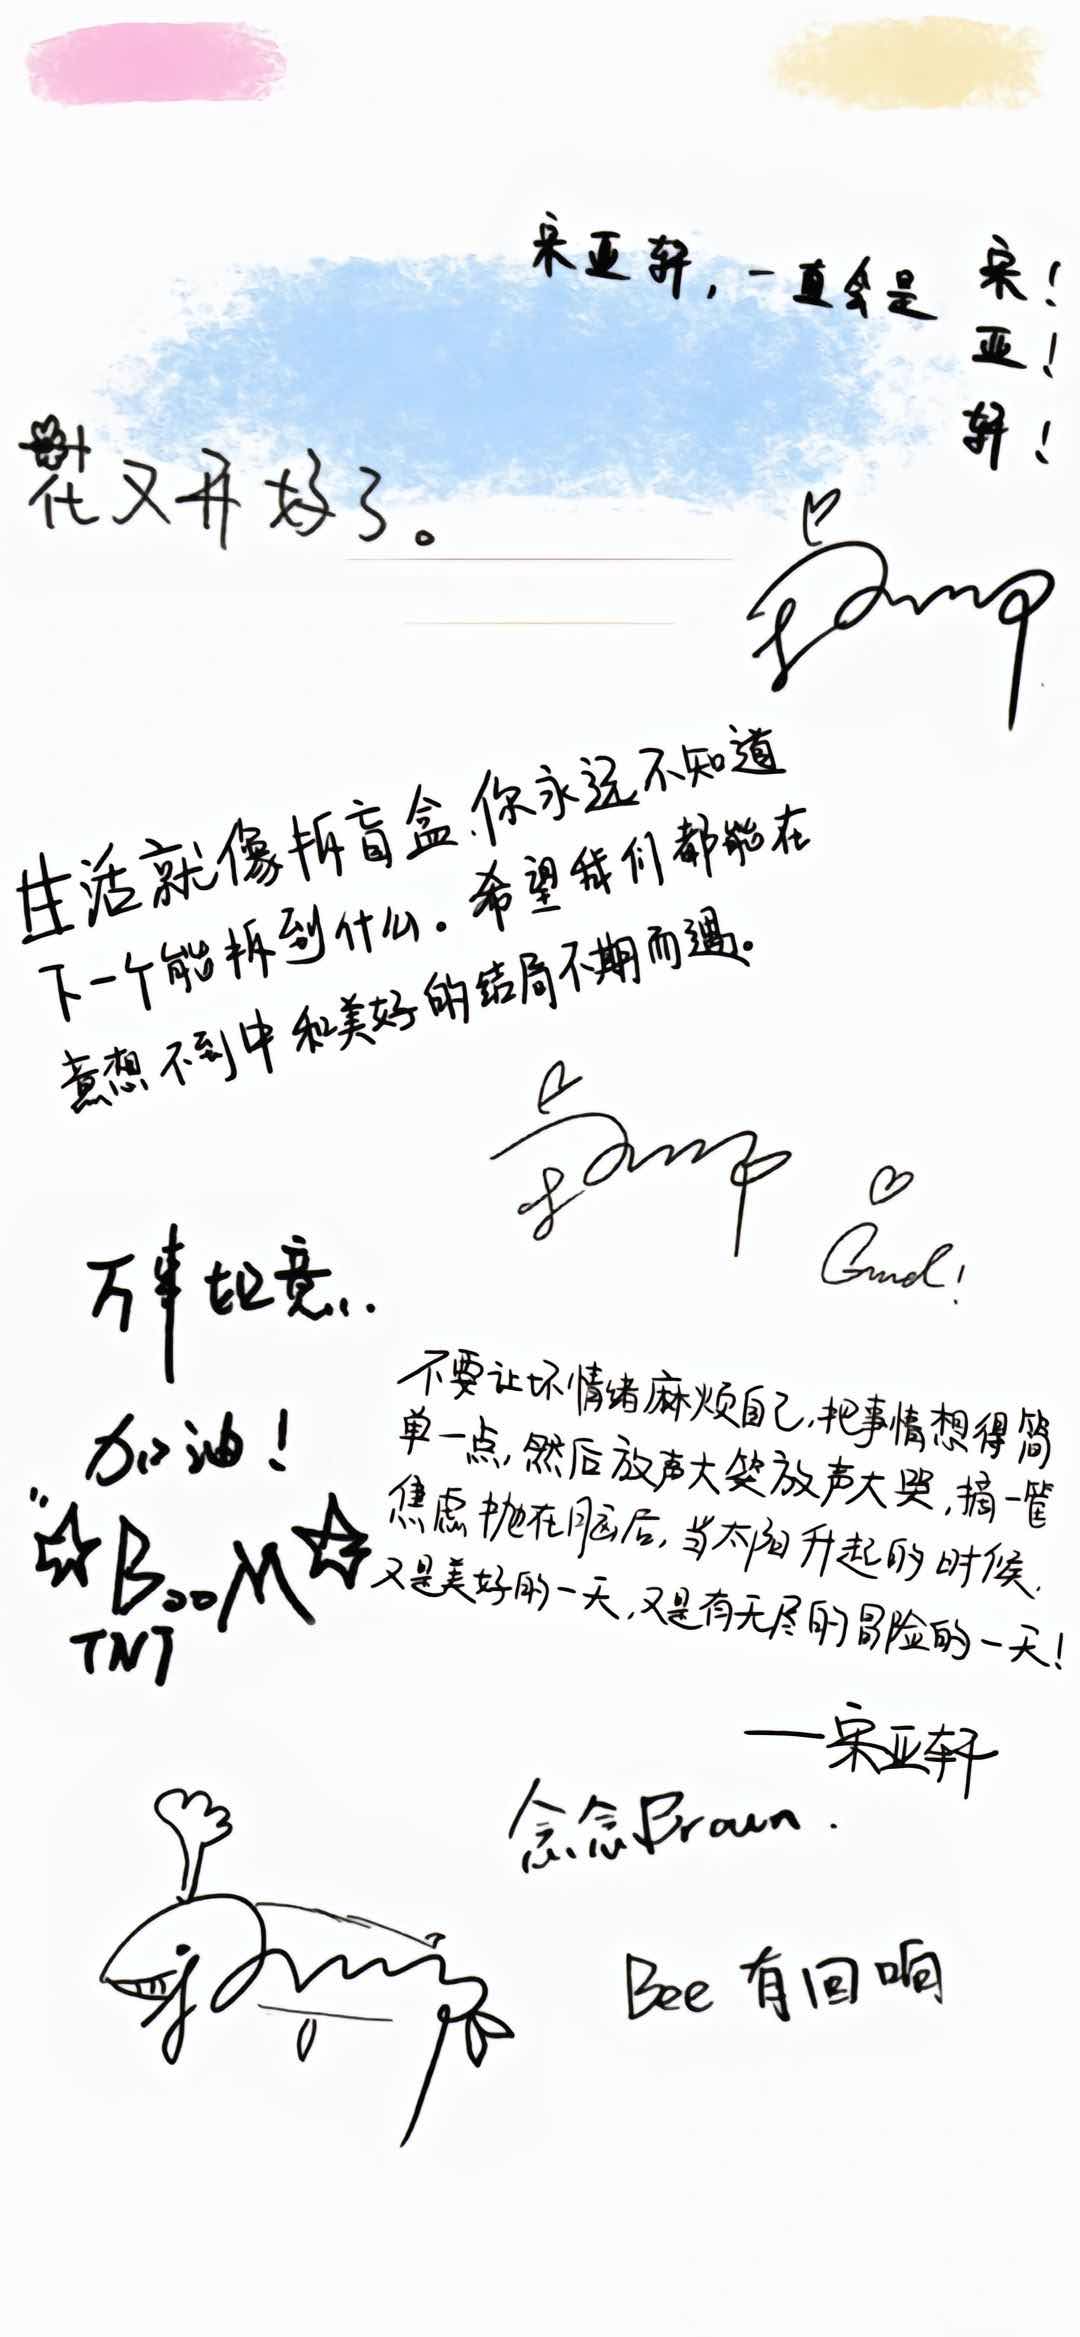 宋亚轩，一直会是
宋！
亚！
轩！
花又开好了。
生活就像拆盲盒，你永远不知道
下一个能拆到什么。希望我们都能在
意想不到中和美好的结局不期而遇。
万事胆意...
加油！
BooM
TNT
不要让坏情绪麻烦自己，把事情想得简
单一点，然后放声大笑放声大哭，摘一筐
焦虑抛在脑后，当太阳升起的时候，
又是美好的一天，又是有无尽的冒险的一天！
——宋亚轩
念念Brown.
Bee有回响